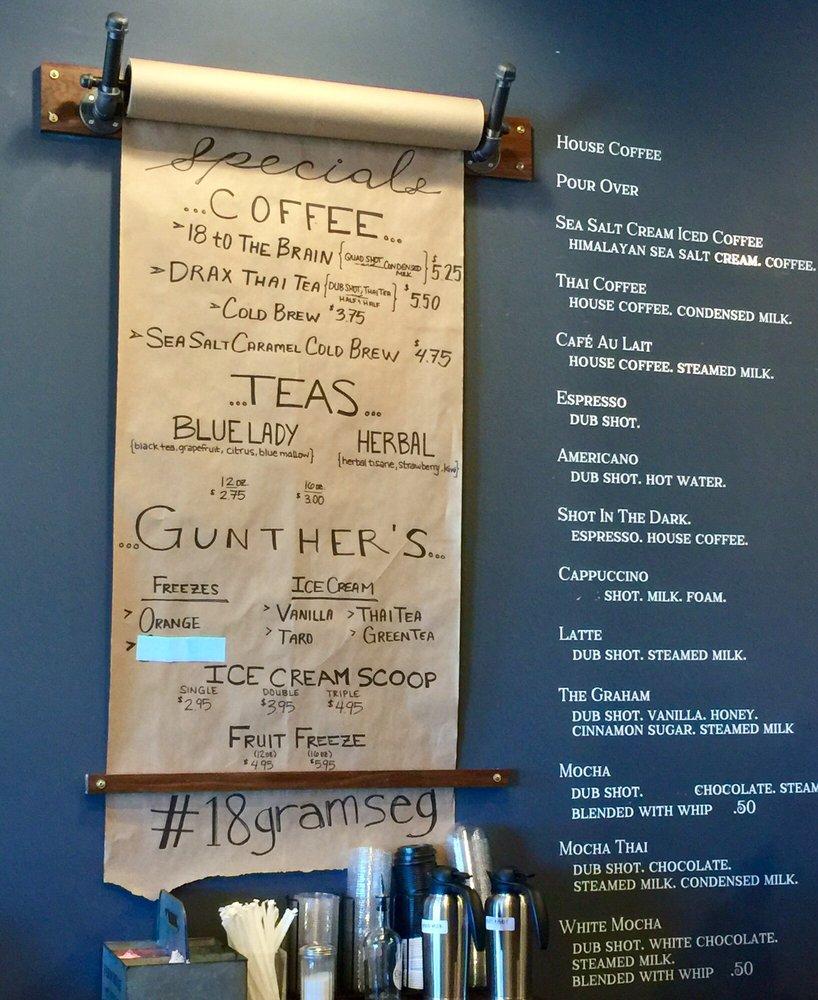 specials
...COFFEE...
➢18 to THE BRAIN {QUAD SHOT, CONDENSED MILK} $5.25
➢DRAX THAI TEA {DUB SHOT, THAI TEA HALF & HALF} $5.50
➢COLD BREW $3.75
➢SEA SALT CARAMEL COLD BREW $4.75
...TEAS...
BLUE LADY
{black tea, grapefruit, citrus, blue mallow}
HERBAL
{herbal tisane, strawberry, kiwi}
12oz $2.75
16oz $3.00
...GUNTHER'S...
FREEZES
> ORANGE
>
ICE CREAM
> VANILLA > THAI TEA
> TARO > GREEN TEA
ICE CREAM SCOOP
SINGLE DOUBLE TRIPLE
$2.95 $3.95 $4.95
FRUIT FREEZE
(12oz) (16oz)
$4.95 $5.95
#18gramseg
HOUSE COFFEE
POUR OVER
SEA SALT CREAM ICED COFFEE
HIMALAYAN SEA SALT CREAM. COFFEE.
THAI COFFEE
HOUSE COFFEE. CONDENSED MILK.
CAFÉ AU LAIT
HOUSE COFFEE. STEAMED MILK.
ESPRESSO
DUB SHOT.
AMERICANO
DUB SHOT. HOT WATER.
SHOT IN THE DARK.
ESPRESSO. HOUSE COFFEE.
CAPPUCCINO
SHOT. MILK. FOAM.
LATTE
DUB SHOT. STEAMED MILK.
THE GRAHAM
DUB SHOT. VANILLA. HONEY.
CINNAMON SUGAR. STEAMED MILK
MOCHA
DUB SHOT. CHOCOLATE. STEAM
BLENDED WITH WHIP .50
MOCHA THAI
DUB SHOT. CHOCOLATE.
STEAMED MILK. CONDENSED MILK.
WHITE MOCHA
DUB SHOT. WHITE CHOCOLATE.
STEAMED MILK.
BLENDED WITH WHIP .50